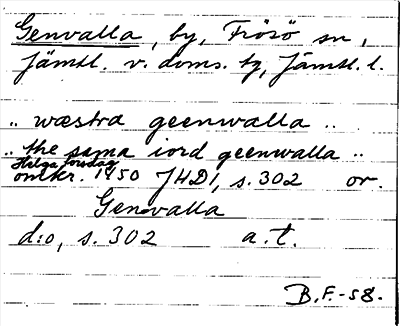 Genvalla, by, Frösö sn,
Jämtl. v. doms. tg, Jämtl. l.
„ wæstra geenwalla „
„ the sama iord geenwalla „
Helga torsdag
omkr. 1450 JHD1, s. 302 or.
Genvalla
d:o, s. 302 a.t.
B.F.-58.